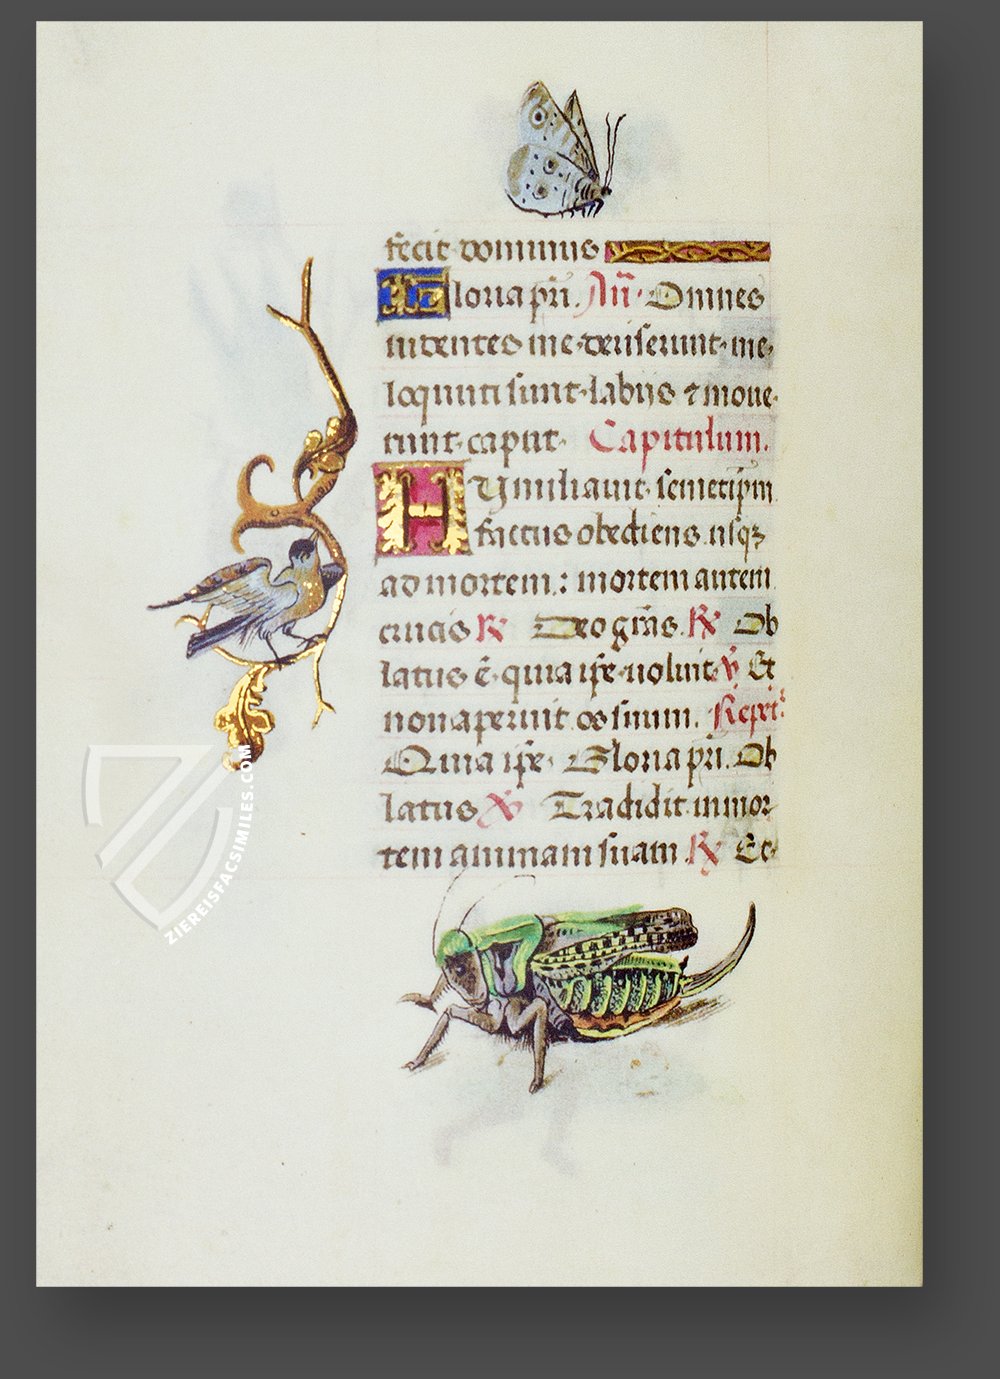 fecit dominus
Gloria pri. Añ. Omnes
videntes me deriserunt me
loquuti sunt labijs ⁊ moue
runt caput. Capitulum.
Humiliauit semetipm
factus obediens usq3
ad mortem: mortem autem
crucis ℟ Deo gras. ℟ Ob
latus ē quia ipe uoluit ℣ Et
non aperuit os suum. Repet:
Quia ipe. Gloria pri. Ob
latus ℣ Tradidit in mor
tem animam suam ℟ Et
ZIEREISFACSIMILES.COM